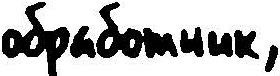 обработчик,